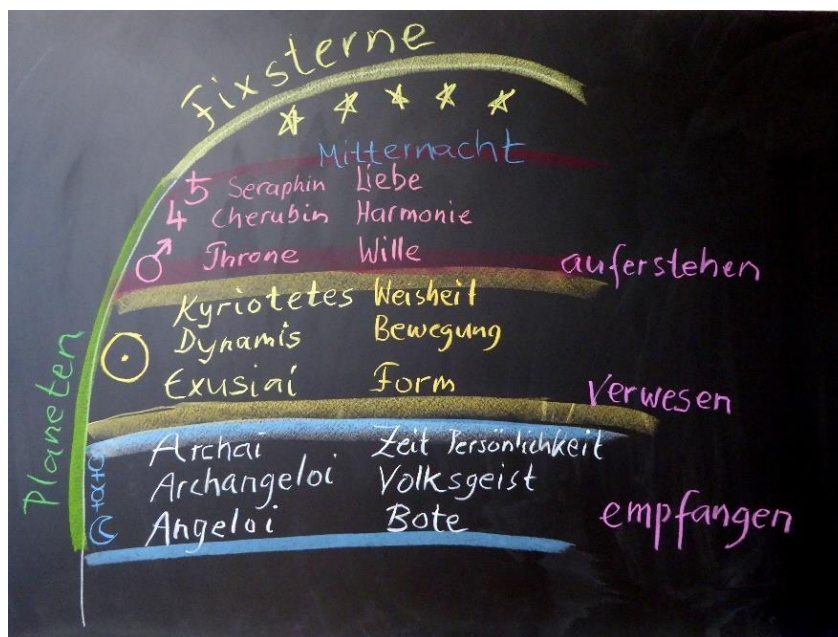 Fixsterne
Mitternacht
♄ Seraphin Liebe
♃ Cherubin Harmonie
♂ Throne Wille
auferstehen
Kyriotetes Weisheit
Dynamis Bewegung
☉
Exusiai Form
Verwesen
Planeten
Archai Zeit Persönlichkeit
Archangeloi Volksgeist
Angeloi Bote
empfangen